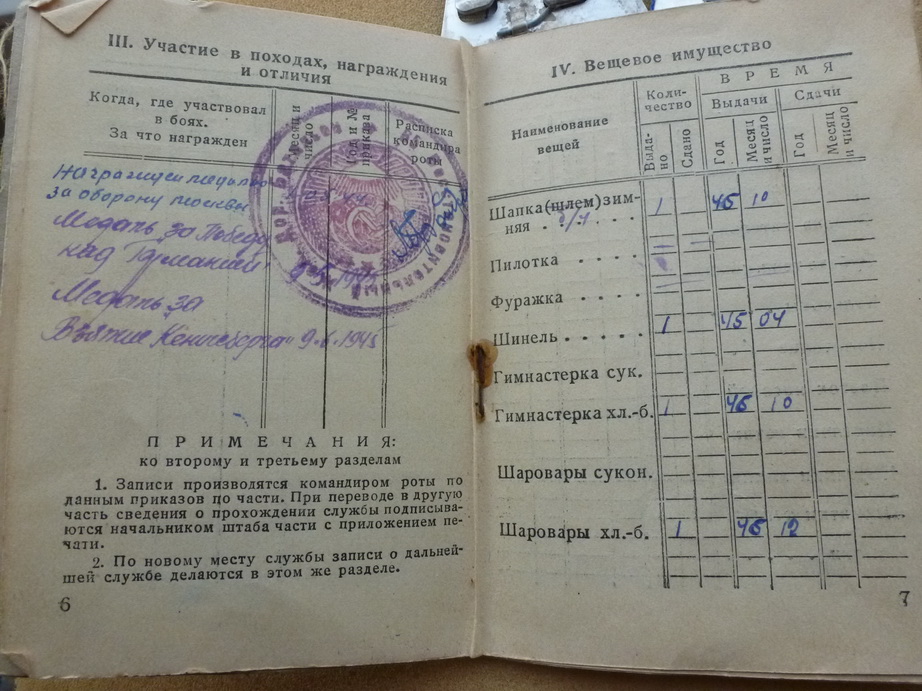 III. Участие в походах, награждения
и отличия
Когда, где участвовал
в боях.
За что награжден
Месяц и
число
Код и №
приказа
Расписка
командира
роты
Награжден медалью
за оборону Москвы
Медаль за Победу
над Германией
Медаль за
Взятие Кенигсберга" 9.6.1945
ПРИМЕЧАНИЯ:
ко второму и третьему разделам
1. Записи производятся командиром роты по
данным приказов по части. При переводе в другую
часть сведения о прохождении службы подписыва-
ются начальником штаба части с приложением пе-
чати.
2. По новому месту службы записи о дальней-
шей службе делаются в этом же разделе.
6
IV. Вещевое имущество
Наименование
вещей
Коли-
чество
ВРЕМЯ
Выдачи
Сдачи
Выда-
но
Сдано
Год
Месяц
и число
Год
Месяц
и число
Шапка (шлем) зим-
няя . . . . . 1 45 10
Пилотка . . . .
Фуражка . . . .
Шинель . . . . . 1 45 04
Гимнастерка сук.
Гимнастерка хл.-б. 1 45 10
Шаровары сукон.
Шаровары хл.-б. 1 45 12
7